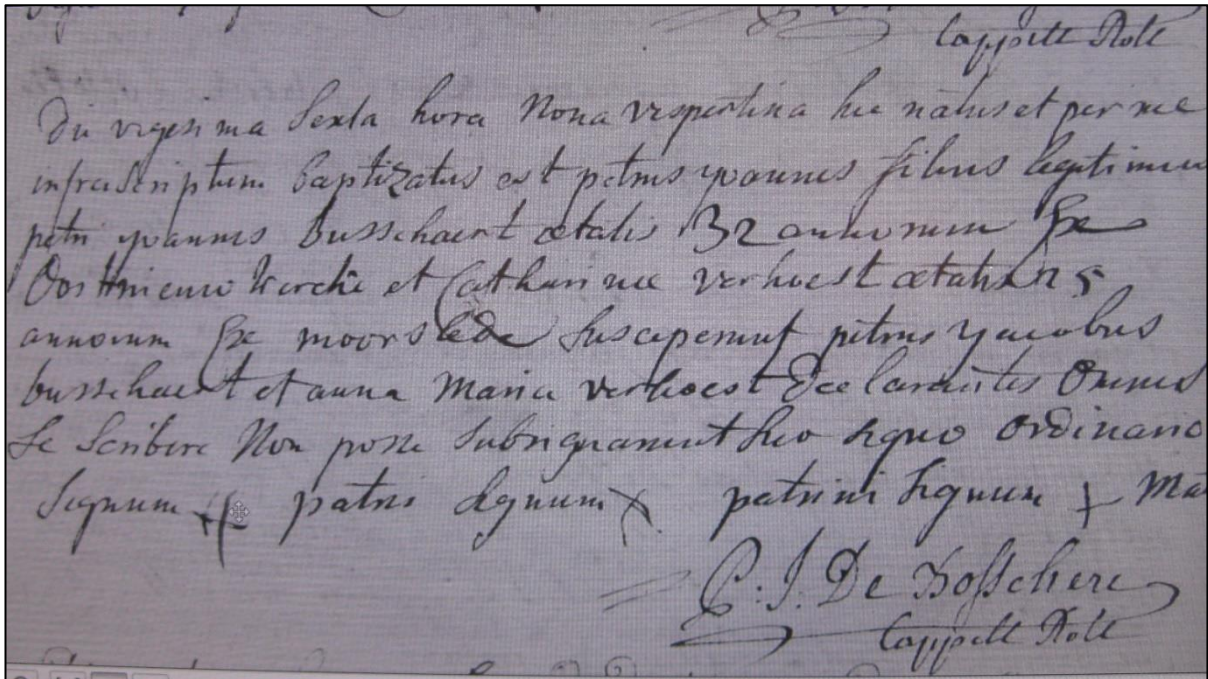 Cappell Role
Die vigesima Sexta hora Nona vespertina hic natus et per me
infrascriptum baptizatus est petrus yoannes filius legitimu
petri yoannis Busschaert ætatis 32 annorum Ex
Oostnieuwkercke et Catharinæ verhoest ætatis 25
annorum Ex moorslede Susceperunt petrus yacobus
busschaert et anna Maria verhoest declarantes Omnes
Se Scribere Non posse Subsignarunt suo signo Ordinario
Signum patris signum patrini signum Mat
C. J. De Bosschere
Cappell Role